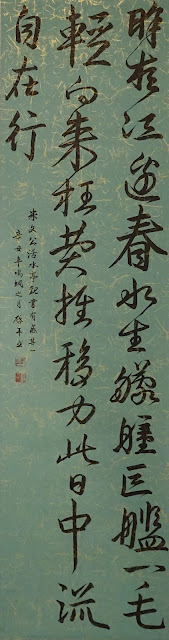 昨夜江邊春水生艨艟巨艦一毛
輕向來枉費推移力此日中流
自在行
朱文公活水亭觀書有感其一
辛丑年鳴蜩之月